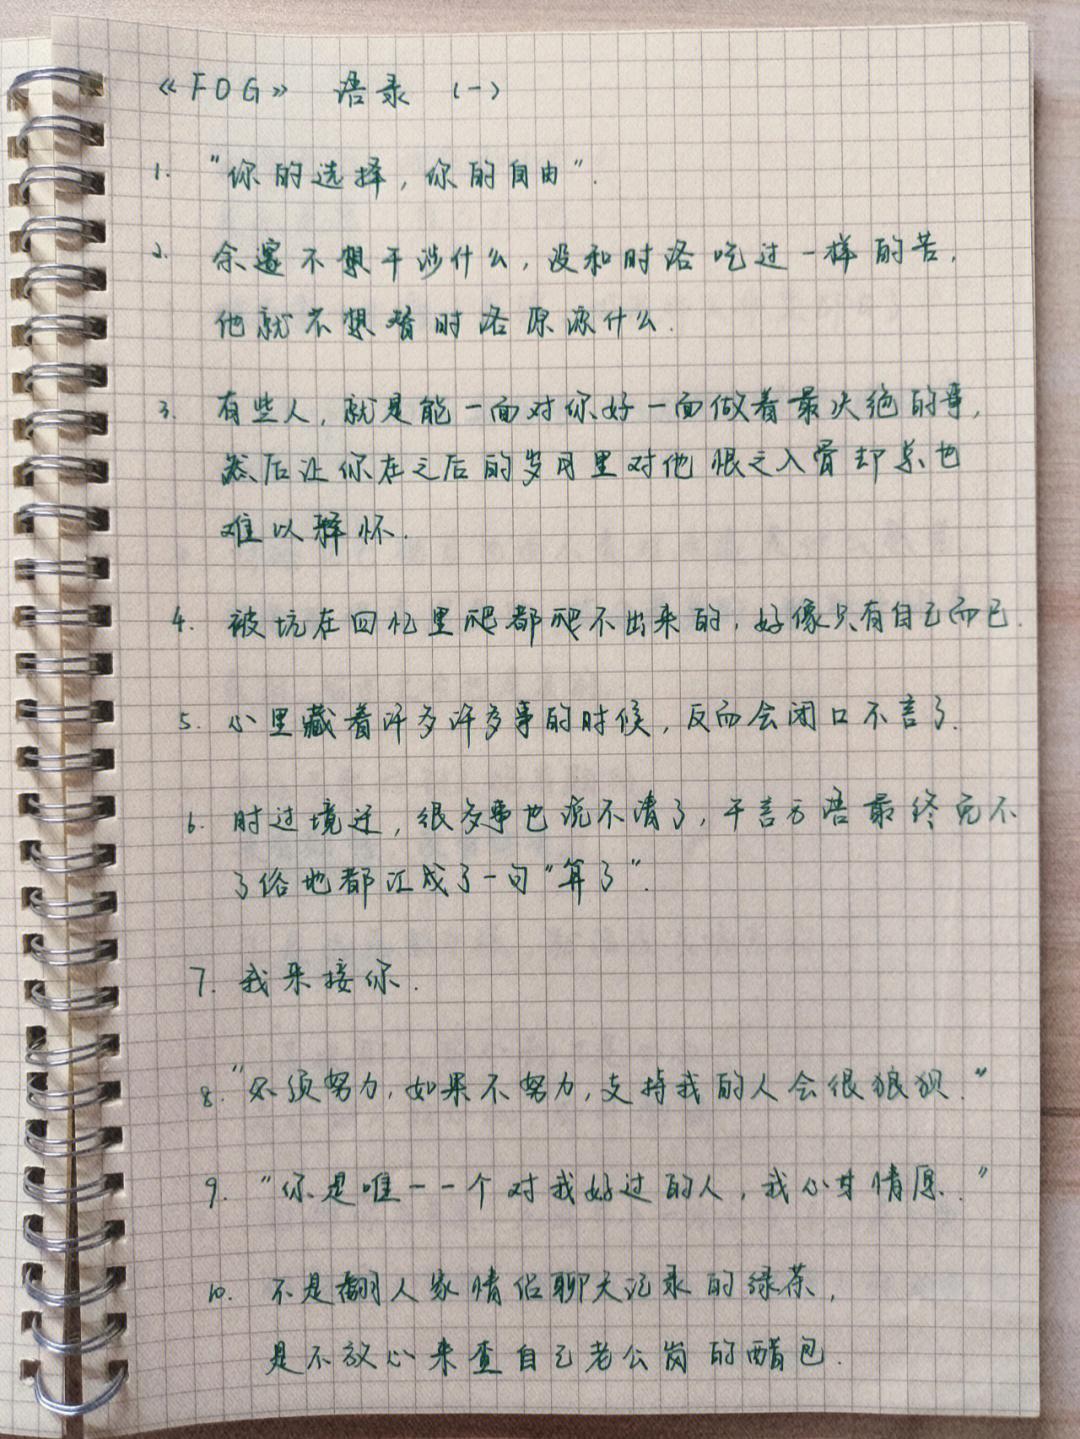 《FOG》 语录 (一)
1. "你的选择，你的自由".
2. 余邃不想干涉什么，没和时洛吃过一样的苦，
他就不想替时洛原谅什么.
3. 有些人，就是能一面对你好一面做着最决绝的事，
然后让你在之后的岁月里对他恨之入骨却总也
难以释怀.
4. 被坑在回忆里爬都爬不出来的，好像只有自己而已.
5. 心里藏着许多许多事的时候，反而会闭口不言了.
6. 时过境迁，很多事也说不清了，千言万语最终免不
了俗地都汇成了一句"算了".
7. 我来接你.
8. "必须努力，如果不努力，支持我的人会很狼狈."
9. "你是唯一一个对我好过的人，我心甘情愿."
10. 不是翻人家情侣聊天记录的绿茶，
是不放心来查自己老公岗的醋包.